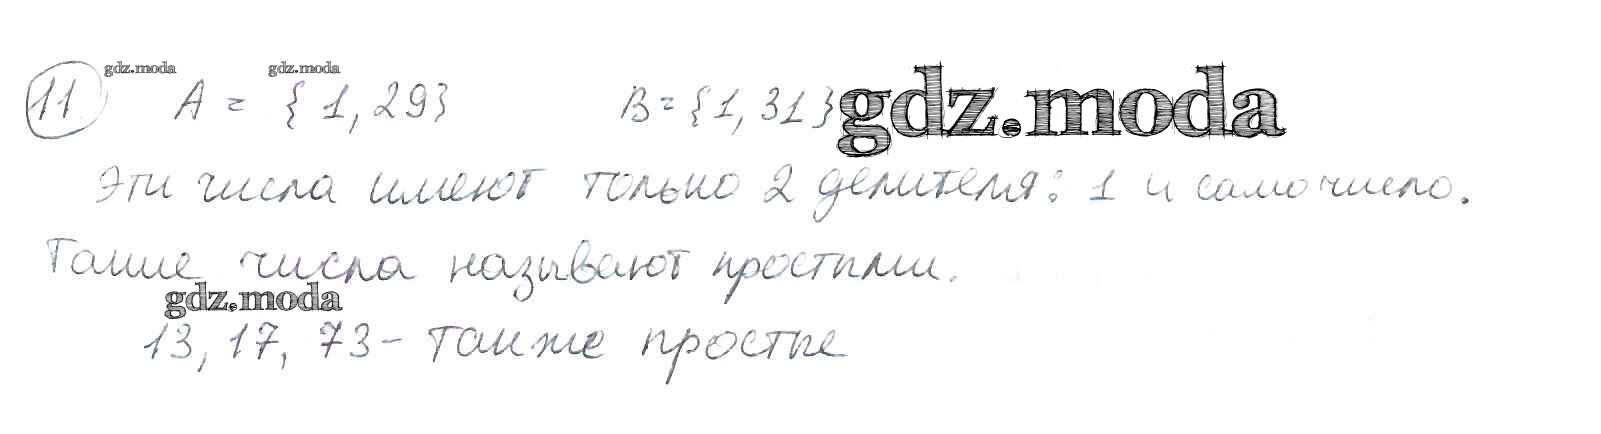 gdz.moda gdz.moda
11 A = { 1, 29} B = {1, 31} gdz.moda
Эти числа имеют только 2 делителя: 1 и само число.
Такие числа называют простыми.
gdz.moda
13, 17, 73 - также простые